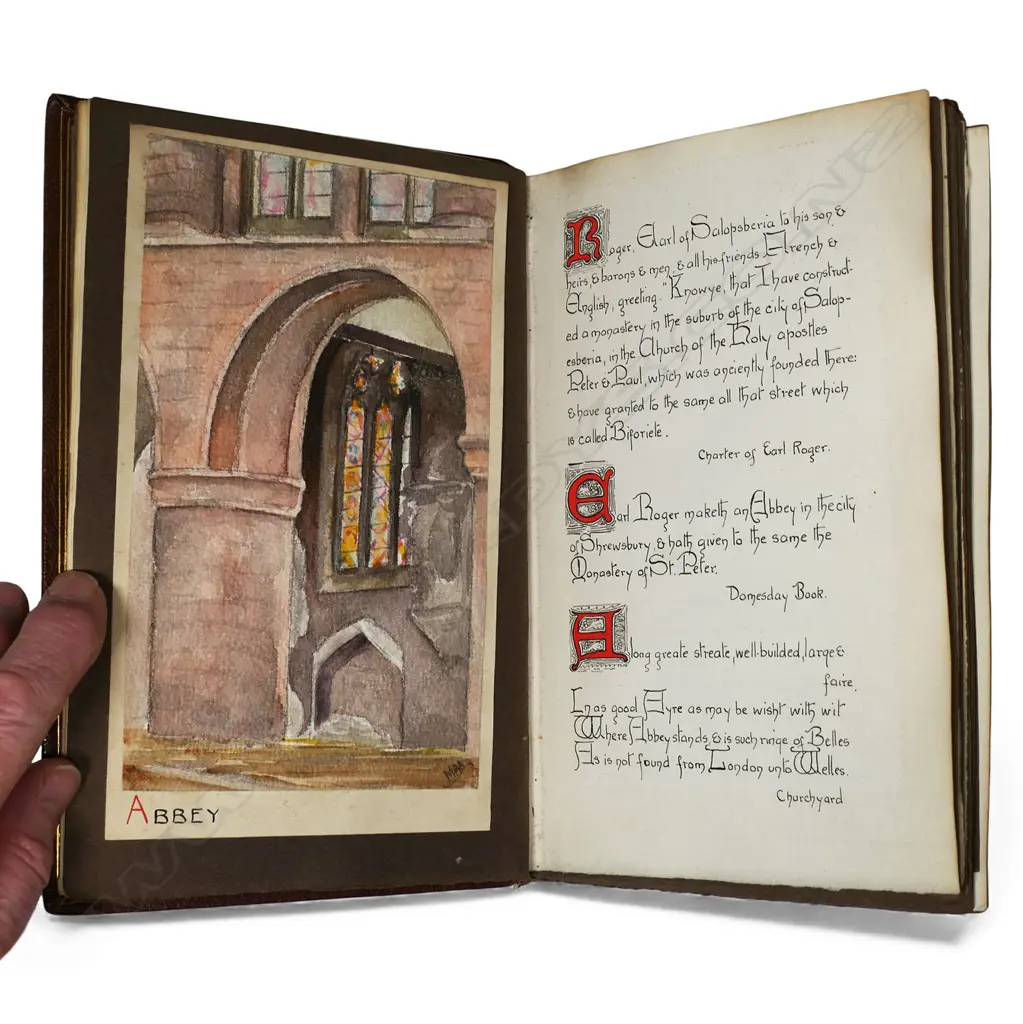 ABBEY
Roger, Earl of Salopsberia to his son &
heirs, & barons & men, & all his friends French &
English, greeting. "Know ye, that I have construct-
ed a monastery in the suburb of the city of Salop-
esberia, in the Church of the Holy apostles
Peter & Paul, which was anciently founded there:
& have granted to the same all that street which
is called Biforiete.
Charter of Earl Roger.
Earl Roger maketh an Abbey in the city
of Shrewsbury, & hath given to the same the
Monastery of St. Peter.
Domesday Book.
A long greate streate, well-builded, large &
faire.
In as good Ayre as may be wisht with wit
Where Abbey stands, & is such ringe of Belles
As is not found from London unto Welles.
Churchyard